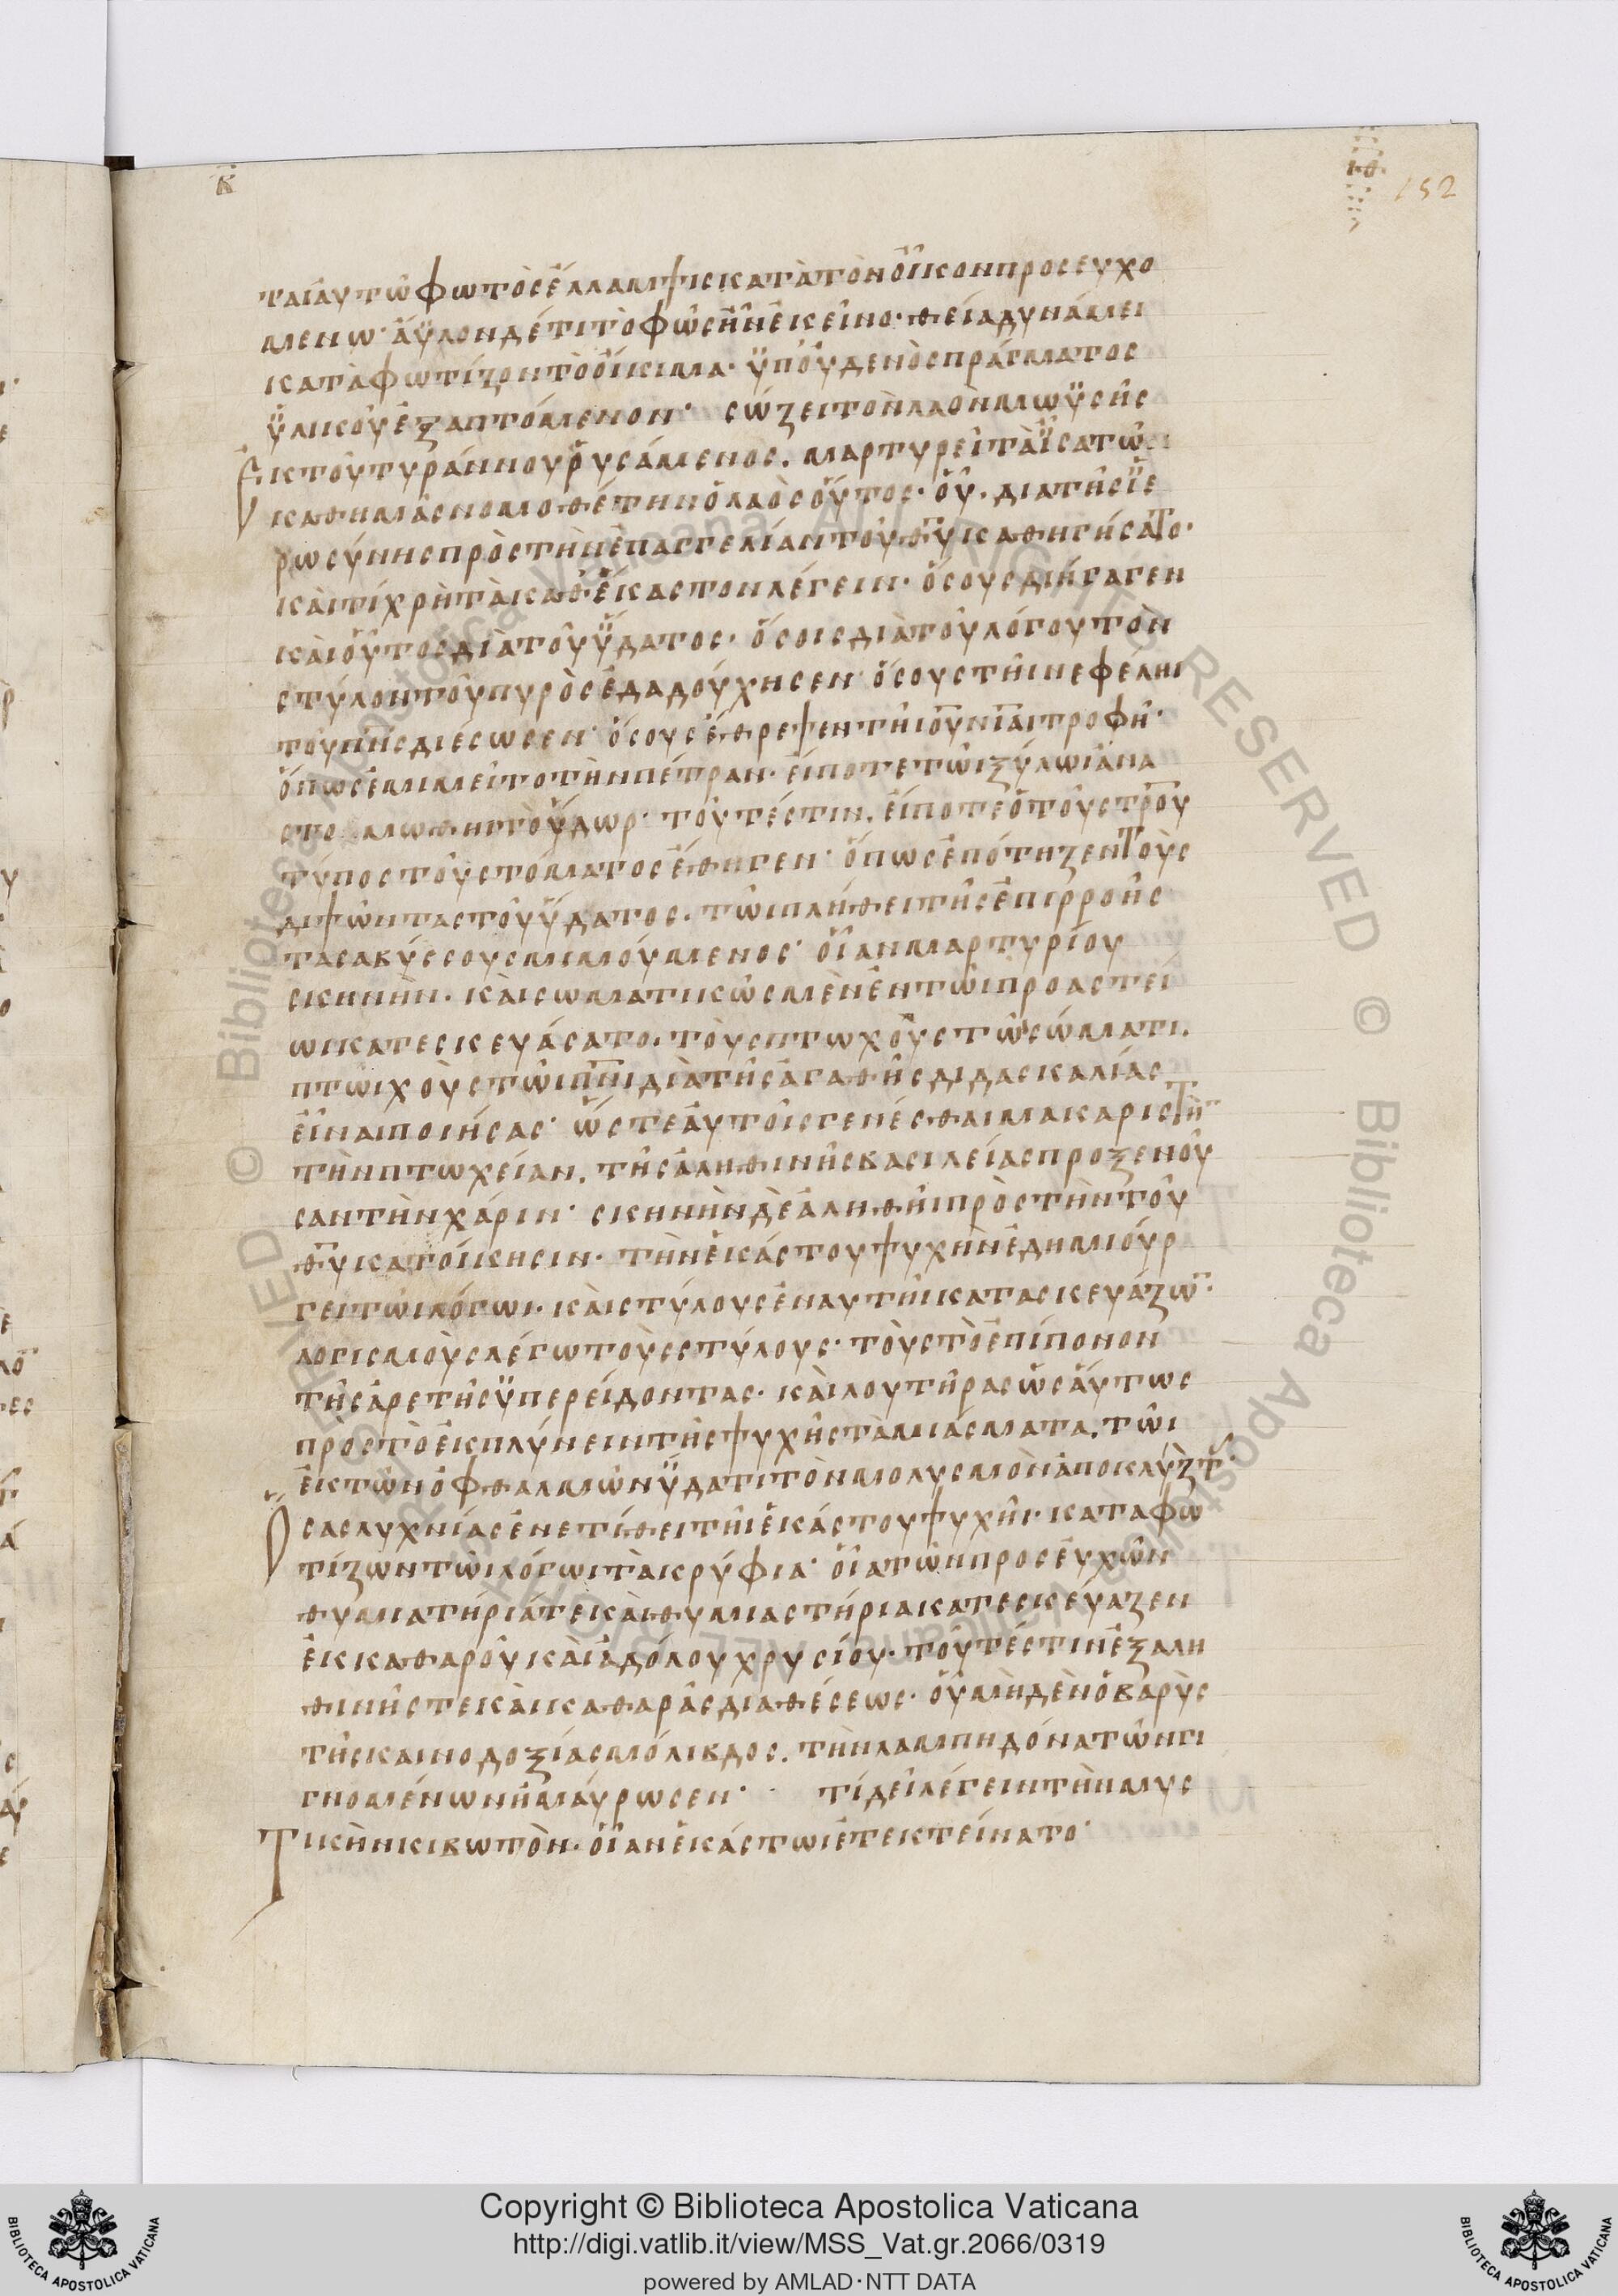 κ
ιθ
152
ταϊαυτῶ φωτὸς ἔλλαμψις κατὰ τὸν οἶκον προσευχο
μενω· ἄϋλον δέ τι τὸ φῶς ἦν ἐκεῖνο· θεία δυνάμει
καταφωτίζον τὸ οἴκιμα· ὑπ' οὐδενὸς πράγματος
ὑλικοῦ ἐξαπτόμενον· σώζει τὸν λαὸν μωϋσῆς
ἐκ τοῦ τυράννου ῥυσάμενος. μαρτυρεῖ τὰ ἴσα τῶ
καθ ημᾶς νομοθέτη ὁ λαὸς οὗτος· οὗ. δια τῆς ἱε
ρωσύνης πρὸς τὴν ἐπαγγελίαν τοῦ θῡ καθηγήσατο·
καὶ τί χρὴ τὰ καθ' ἕκαστον λέγειν· ὅσους διήγαγεν
καὶ οὗτος διὰ τοῦ ὕδατος· ὅσοις διὰ τοῦ λόγου τὸν
στύλον τοῦ πυρὸς ἐδαδούχησεν· ὅσους τῆι νεφέληι
τοῦ πν̅ς διέσωσεν· ὅσους ἔθρεψεν τῆι οὐνίαι τροφῆ·
ὅπως ἐμιμεῖτο τὴν πέτραν· εἴποτε τῶι ξύλωι ἀνα
στομωθῆ τὸ ὕδωρ· τουτέστιν. εἴποτε ὁ τοῦ στρ̅ου
τύπος τοῦ στόματος ἔθιγεν· ὅπως ἐπότηζεν τοὺς
διψῶντας τοῦ ὕδατος. τῶι πλήθει τῆς ἐπιρροῆς
τας αβύσσους μιμούμενος· οἵαν μαρτυρίου
σκηνὴν. καὶ σωματικῶς μὲν ἐν τῶι προαστεί
ωι κατεσκευάσατο. τοὺς πτωχοὺς τῶ σώματι.
πτωιχοὺς τῶι πν̅ι διὰ τῆς ἀγαθῆς διδασκαλίας
εἶναι ποιήσας· ὥστε αὐτοῖς γενέσθαι μακαριστὴν
τὴν πτωχείαν. τῆς ἀληθινῆς βασιλείας προξενοῦ
σαν τὴν χάριν· σκηνὴν δὲ ἀληθῆ πρὸς τὴν τοῦ
θῡ κατοίκησιν· τὴν ἑκάστου ψυχὴν ἐδημιούρ
γει τῶι λόγωι· καὶ στύλους ἐν αυτῆι κατασκευάζω̅·
λογισμοὺς λέγω τοὺς στύλους· τοὺς τὸ ἐπίπονον
τῆς ἀρετῆς ὑπερείδοντας· καὶ λουτῆρας ὡσαύτως
πρὸς τὸ ἐκπλύνειν τῆς ψυχῆς τὰ μιάσματα. τῶι
ἐκ τῶν ὀφθαλμῶν ὕδατι τὸν μολυσμὸν ἀποκλύζ̅τ·
ὅσας λυχνίας ἐνετίθει τῆι ἑκάστου ψυχῆι· καταφω
τίζων τῶι λόγωι τὰ κρύφια· οἷα τῶν προσευχῶν
θυμιατήριά τε καὶ θυμιαστήρια κατεσκεύαζεν
ἐκ καθαροῦ καὶ ἀδόλου χρυσίου· τουτέστιν ἐξ αλη
θινῆς τε καὶ καθαρᾶς διαθέσεως· οὗ μηδὲν ὁ βαρὺς
τῆς καινοδοξίας μόλιβδος. τὴν λαμπηδόνα τῶν γι
γνομένων ἠμαύρωσεν· τί δεῖ λέγειν τὴν μυς
τικὴν κιβωτὸν· οἵαν ἑκάστωι ἐτεκτείνατο·
Copyright © Biblioteca Apostolica Vaticana
http://digi.vatlib.it/view/MSS_Vat.gr.2066/0319
powered by AMLAD·NTT DATA